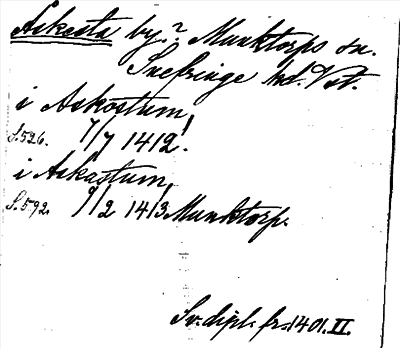 Askesta by? Munktorps sn.
Snefringe hd. Vstm.
i Askostum,
S. 526. 7/7 1412.
i Askastum,
S. 592. 9/2 1413 Munktorp.
Sv. dipl. fr. 1401. II.